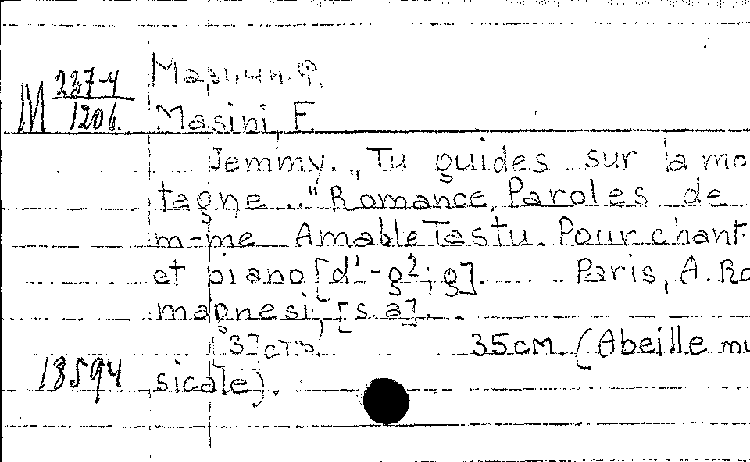 М 237-4
1206
Мазини, Ф.
Masini, F.
Jemmy. „Tu guides sur la mo
tagne..." Romance. Paroles de
m-me Amable Tastu. Pour chant
et piano [d¹-g²; g]. Paris, A. Ro
magnesi, [s.a].
35cm. (Abeille mu
18594 sicale).